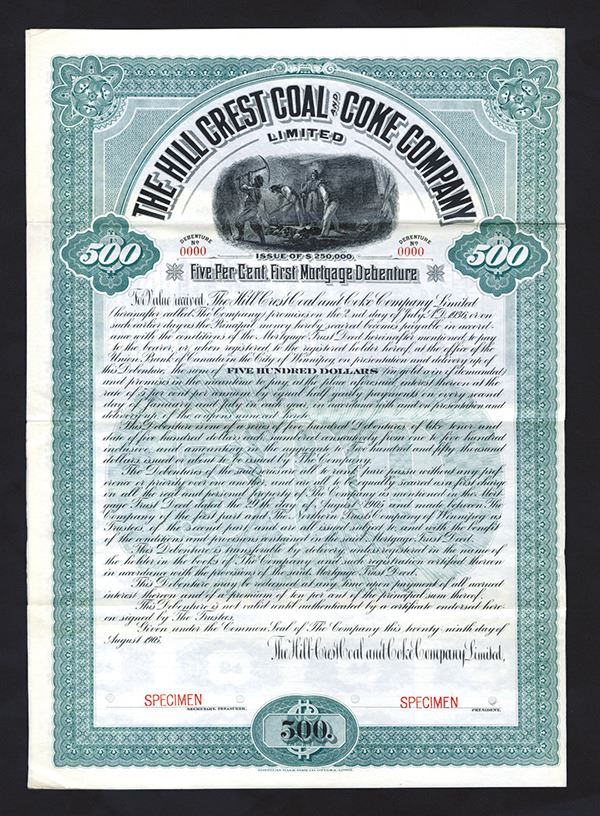 THE HILL CREST COAL AND COKE COMPANY
LIMITED
DEBENTURE
No
0000
DEBENTURE
No
0000
500
500
ISSUE OF $250,000.
Five Per Cent. First Mortgage Debenture
For Value received, The Hill Crest Coal and Coke Company Limited
(hereinafter called The Company) promises on the 2nd day of July A.D. 1936, or on
such earlier day as the Principal money hereby secured becomes payable in accord-
ance with the conditions of the Mortgage Trust Deed hereinafter mentioned, to pay
to the bearer, or when registered to the registered holder hereof, at the office of the
Union Bank of Canada in the City of Winnipeg on presentation and delivery up of
this Debenture, the sum of FIVE HUNDRED DOLLARS in gold coin if demanded
and promises in the meantime to pay, at the place aforesaid interest thereon at the
rate of 5 per cent per annum by equal half yearly payments on every second
day of January and July in each year in accordance with and on presentation and
delivery up of the coupons annexed hereto.
This Debenture is one of a series of five hundred Debentures of like tenor and
date of five hundred dollars each, numbered consecutively from one to five hundred
inclusive, and amounting in the aggregate to two hundred and fifty thousand
dollars issued or about to be issued by The Company.
The Debentures of the said series are all to rank pari passu without any pref-
erence or priority over one another and are all to be equally secured as a first charge
on all the real and personal property of The Company as mentioned in the Mort-
gage Trust Deed dated the 29th day of August 1905 and made between The
Company of the first part and The Northern Trusts Company of Winnipeg as
Trustees of the second part, and are all issued subject to and with the benefit
of the conditions and provisions contained in the said Mortgage Trust Deed.
This Debenture is transferable by delivery unless registered in the name of
the holder in the books of The Company and such registration certified thereon
in accordance with the provisions of the said Mortgage Trust Deed.
This Debenture may be redeemed at any time upon payment of all accrued
interest thereon and of a premium of ten per cent of the principal sum thereof.
This Debenture is not valid until authenticated by a certificate endorsed here-
on signed by The Trustees.
Given under the Common Seal of The Company this twenty-ninth day of
August 1905.
The Hill Crest Coal and Coke Company Limited,
SPECIMEN
SECRETARY, TREASURER.
SPECIMEN
PRESIDENT.
500.